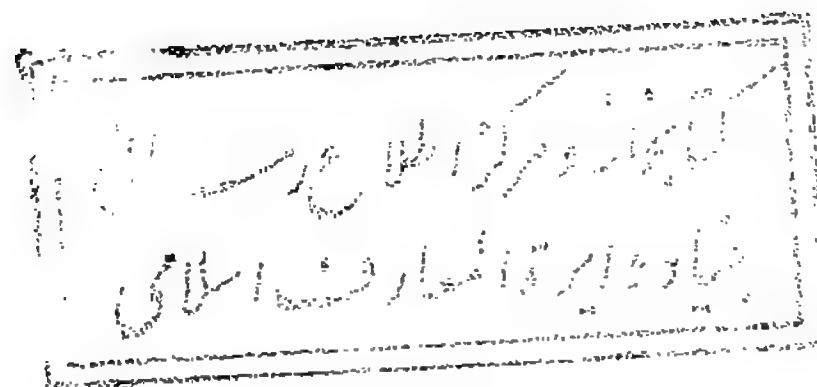 کتابخانه و مرکز اطلاع رسانی
بنیاد دایرة المعارف اسلامی